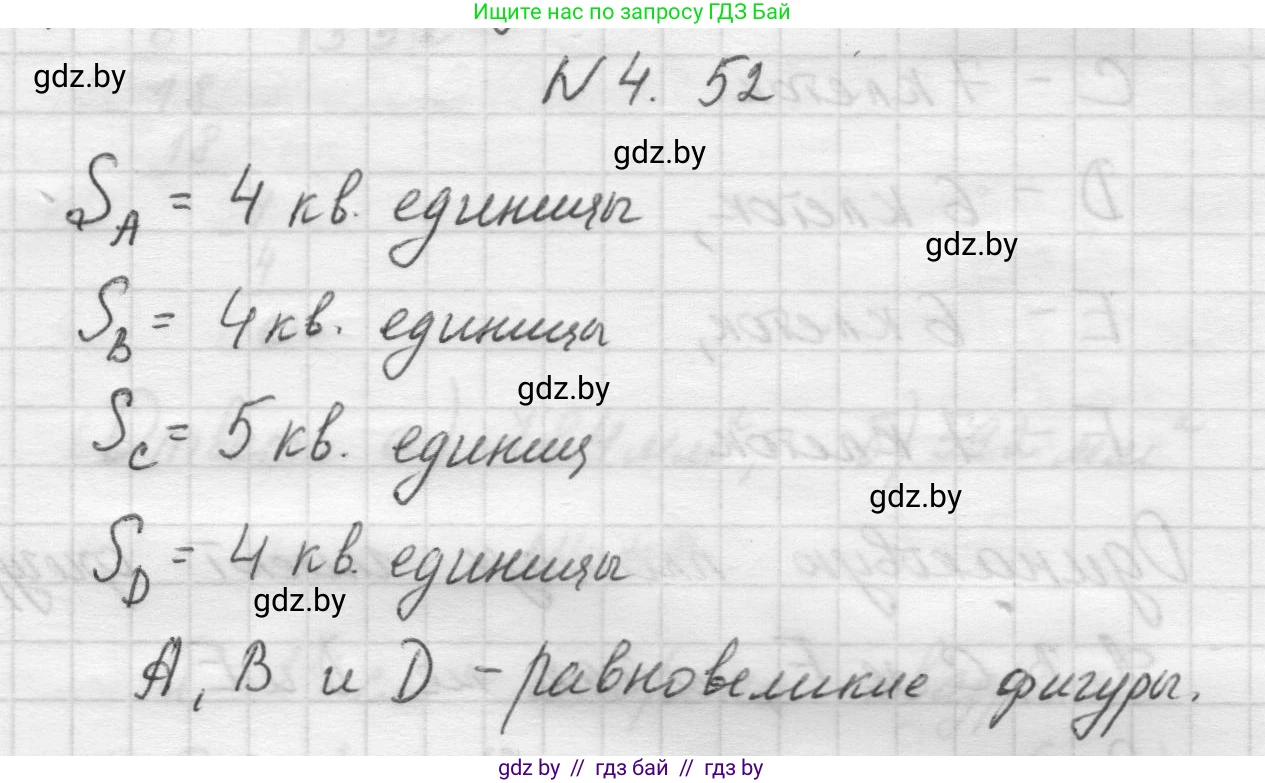 Ищите нас по запросу ГДЗ Бай
gdz.by
N 4. 52
gdz.by
S_A = 4 кв. единицы
gdz.by
S_B = 4 кв. единицы
gdz.by
S_C = 5 кв. единиц
gdz.by
S_D = 4 кв. единицы
gdz.by
A, B и D - равновеликие фигуры.
gdz.by // гдз бай // гдз by